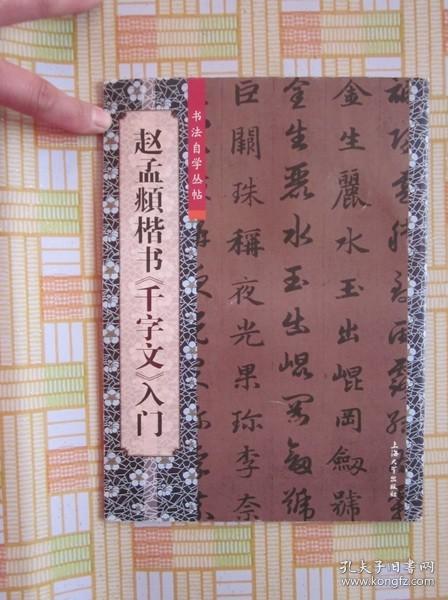 书法自学丛帖
赵孟頫楷书《千字文》入门
金生麗水玉出崐岡劔號
金生麗水玉出崐岡劔號
巨闕珠稱夜光果珍李柰
上海大学出版社
孔夫子旧书网
www.kongfz.com